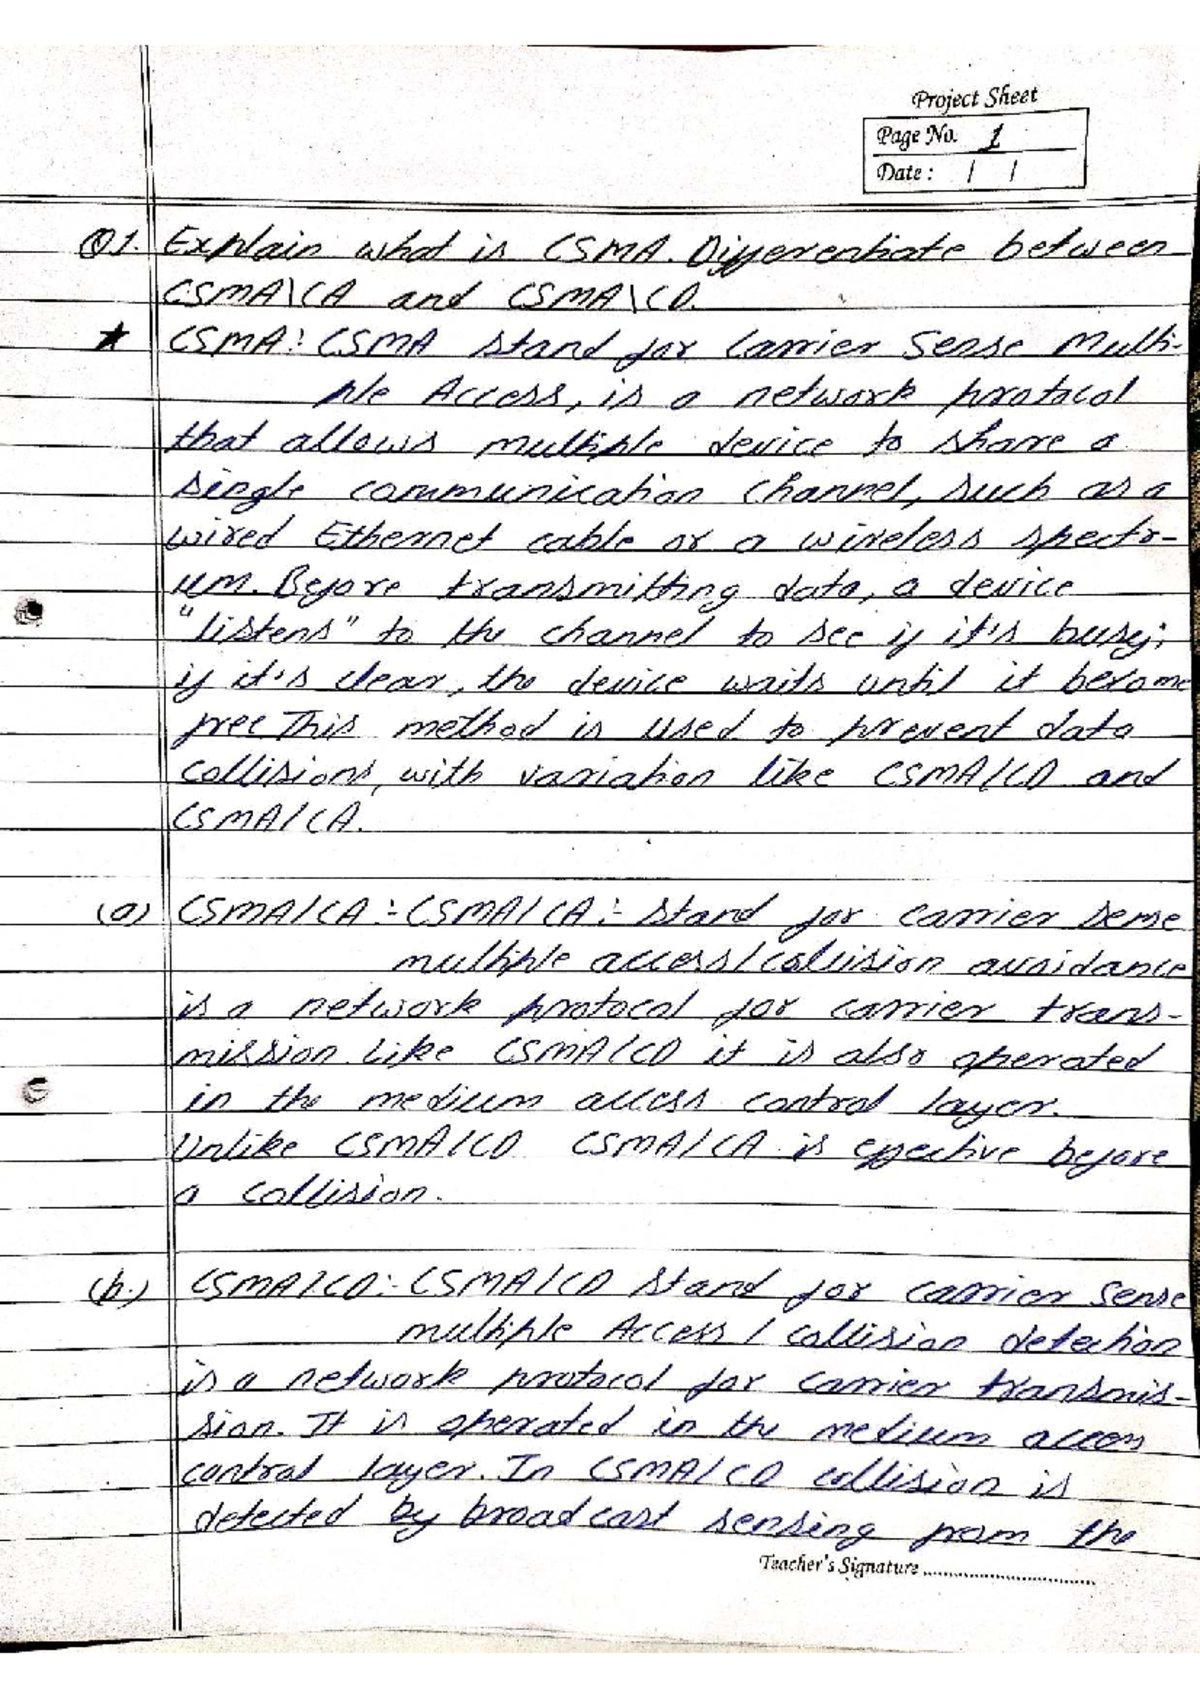 Project Sheet
Page No. 1
Date: / /
Q1. Explain what is CSMA. Differentiate between
CSMA\CA and CSMA\CD.
★ CSMA:- CSMA stand for Carrier Sense Multi-
ple Access, is a network protocol
that allows multiple device to share a
single communication channel, such as a
wired Ethernet cable or a wireless spectr-
um. Before transmitting data, a device
"listens" to the channel to see if it's busy;
if it's clear, the device waits until it become
free. This method is used to prevent data
collisions, with variation like CSMA/CD and
CSMA/CA.
(a) CSMA/CA :- CSMA/CA :- stand for carrier sense
multiple access/collision avoidance
is a network protocol for carrier trans-
mission. Like CSMA/CD it is also operated
in the medium access control layer.
Unlike CSMA/CD CSMA/CA is effective before
a collision.
(b.) CSMA/CD:- CSMA/CD stand for carrier sense
multiple Access / collision detection
is a network protocol for carrier transmis-
sion. It is operated in the medium access
control layer. In CSMA/CD collision is
detected by broadcast sensing from the
Teacher's Signature